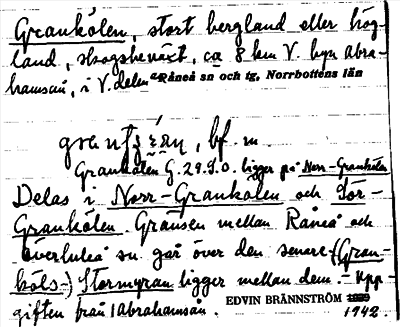 Grankölen, stort bergland eller hög-
land, skogsbeväxt, ca 8 km V. byn Abra-
hamsån, i V. delen av Råneå sn och tg, Norrbottens län
bf. m.
Grankölen G. 29.9.0. ligger på Norr-Grankölen
Delas i Norr-Grankölen och Sör-
Grankölen. Gränsen mellan Råneå och
Överluleå sn. går över den senare. (Gran-
köls-) Stormyran ligger mellan dem. - Upp-
giften från Abrahamsån. EDVIN BRÄNNSTRÖM 1939
1942.